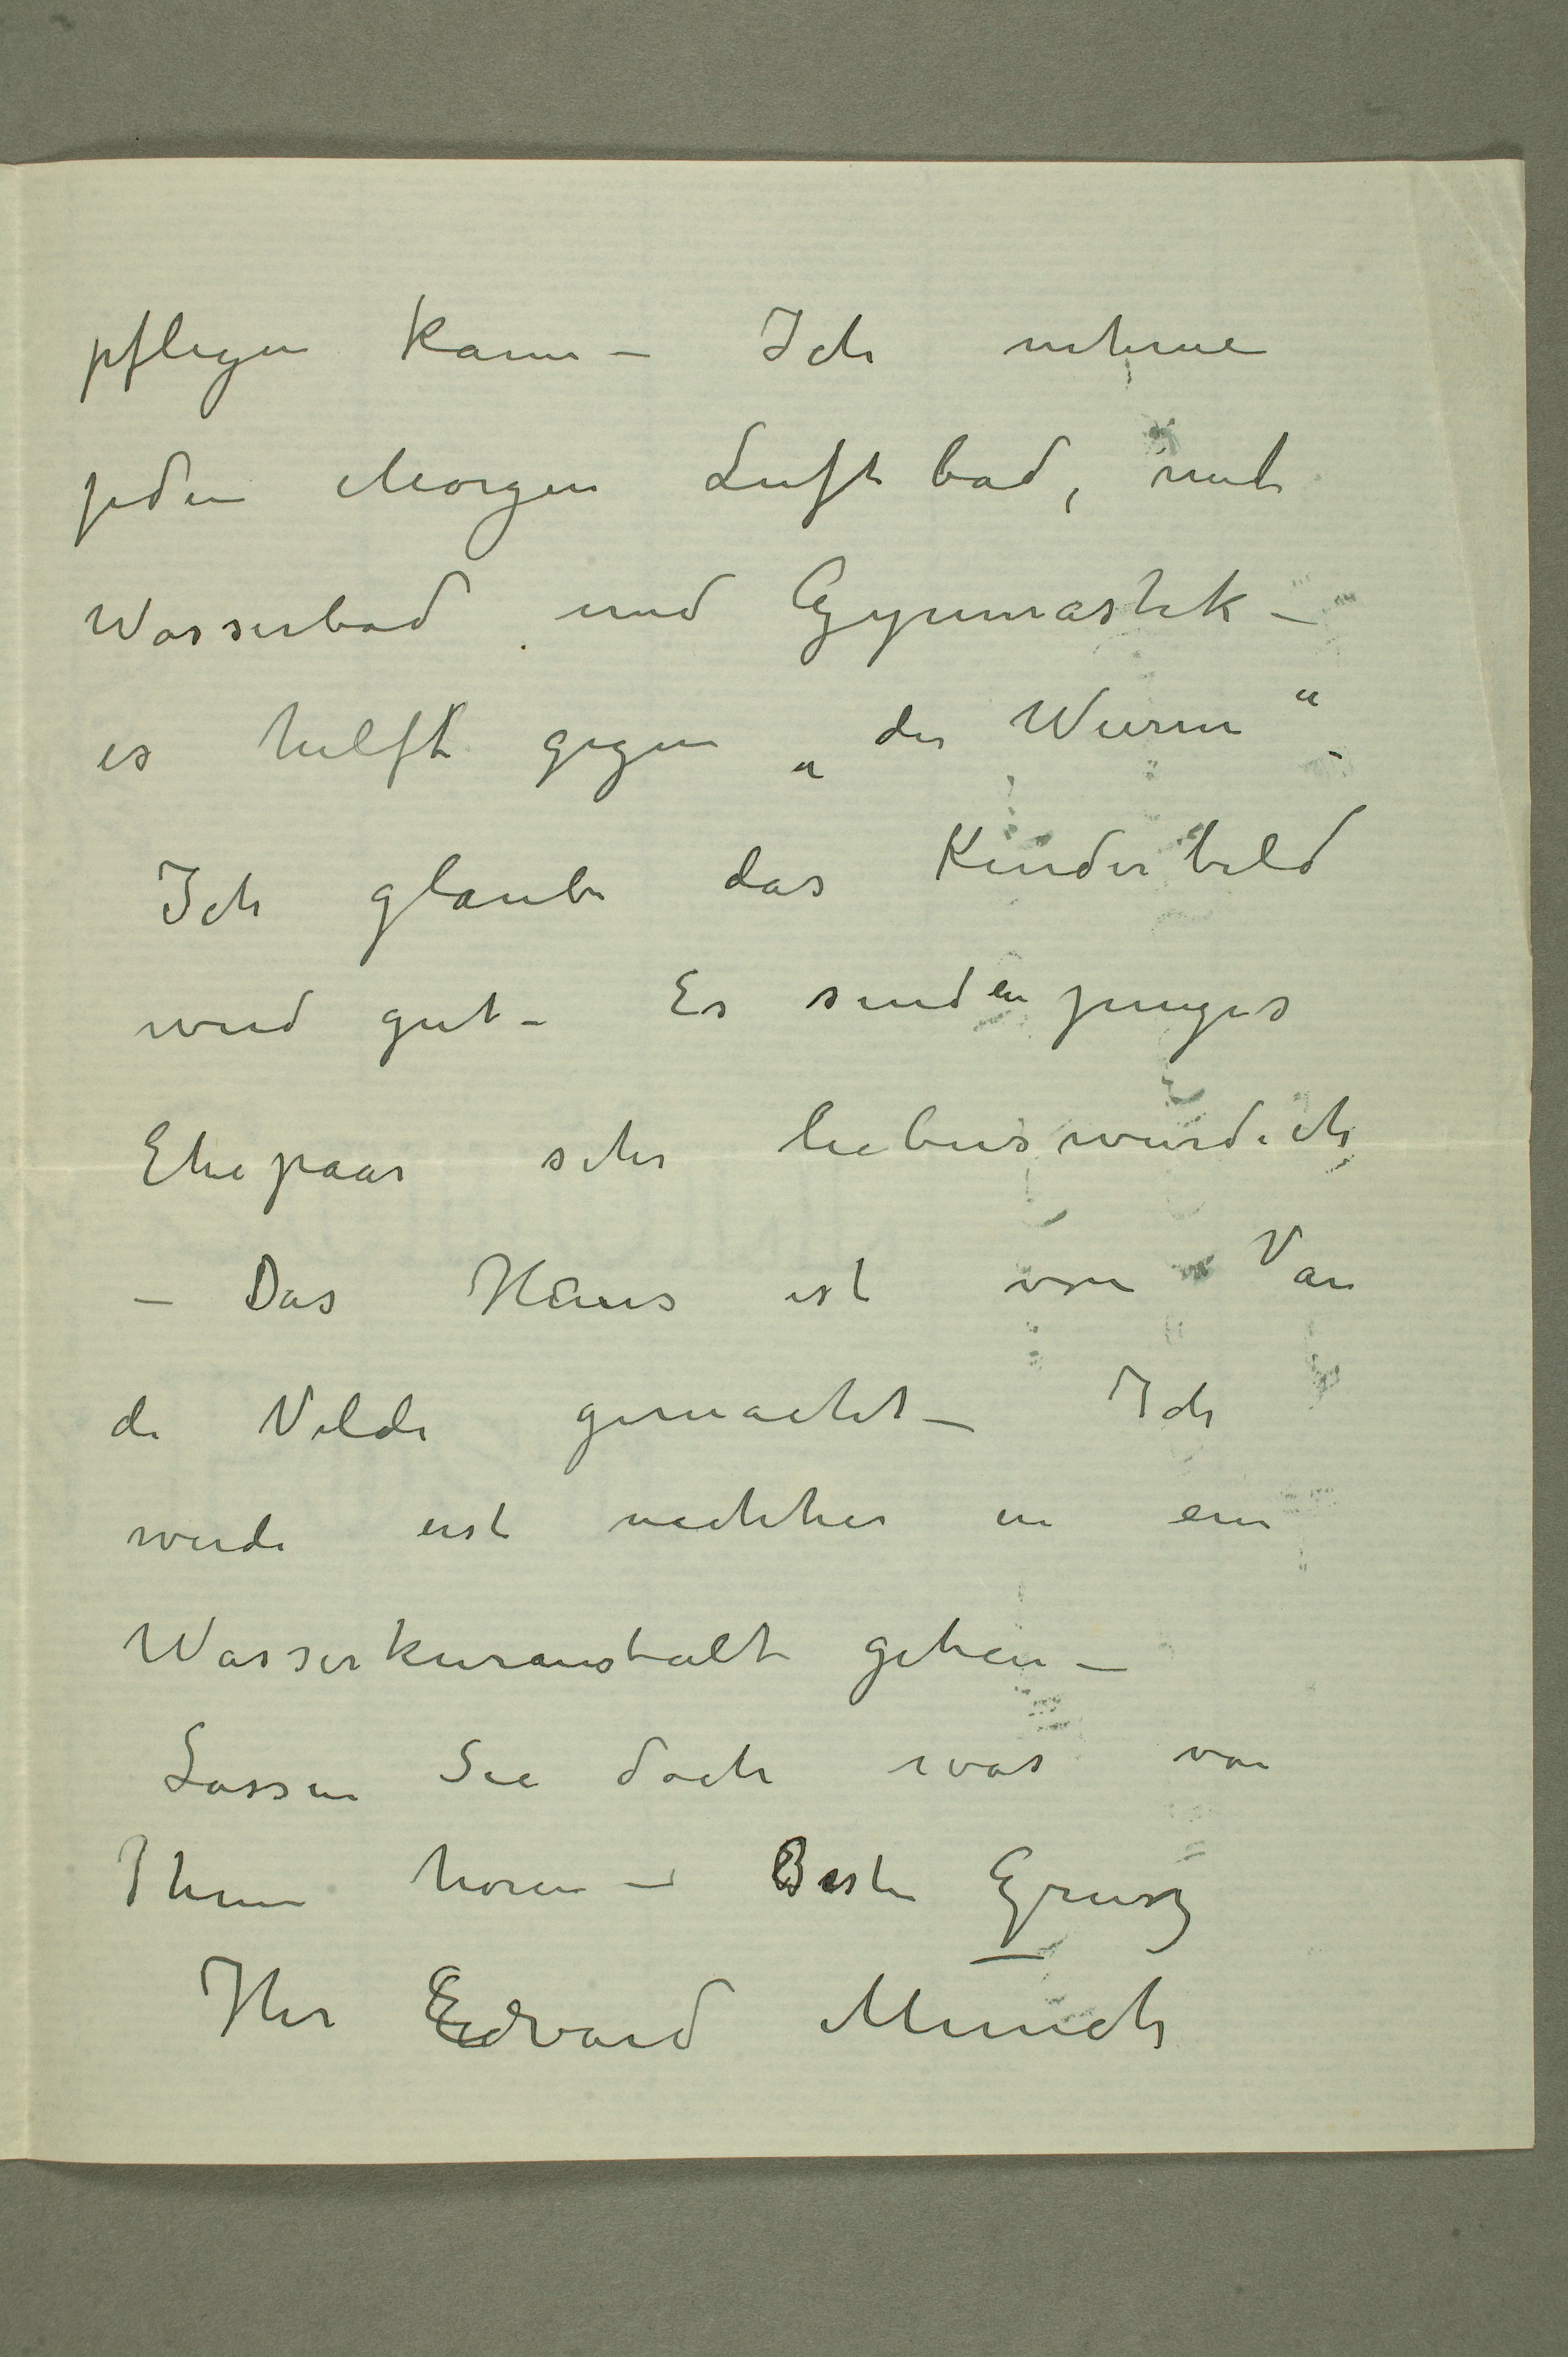 pflegen kann – Ich nehme
jeden Morgen Luftbad, mit
Wasserbad und Gymnastik –
es hilft gegen „der Wurm“ –
Ich glaube das Kinderbild
wird gut – Es sind ein junges
Ehepaar sehr liebenswurdich
– Das Haus ist von Van
de Velde gemacht – Ich
werde erst nachher in ein
Wasserkuranstalt gehen –
Lassen Sie doch was von
Ihnen horen – Beste Grusz
Ihr Edvard Munch